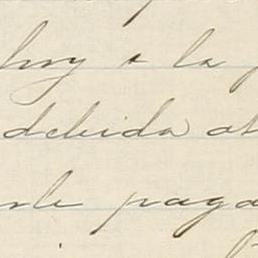 hoy a la
debida at
de paga